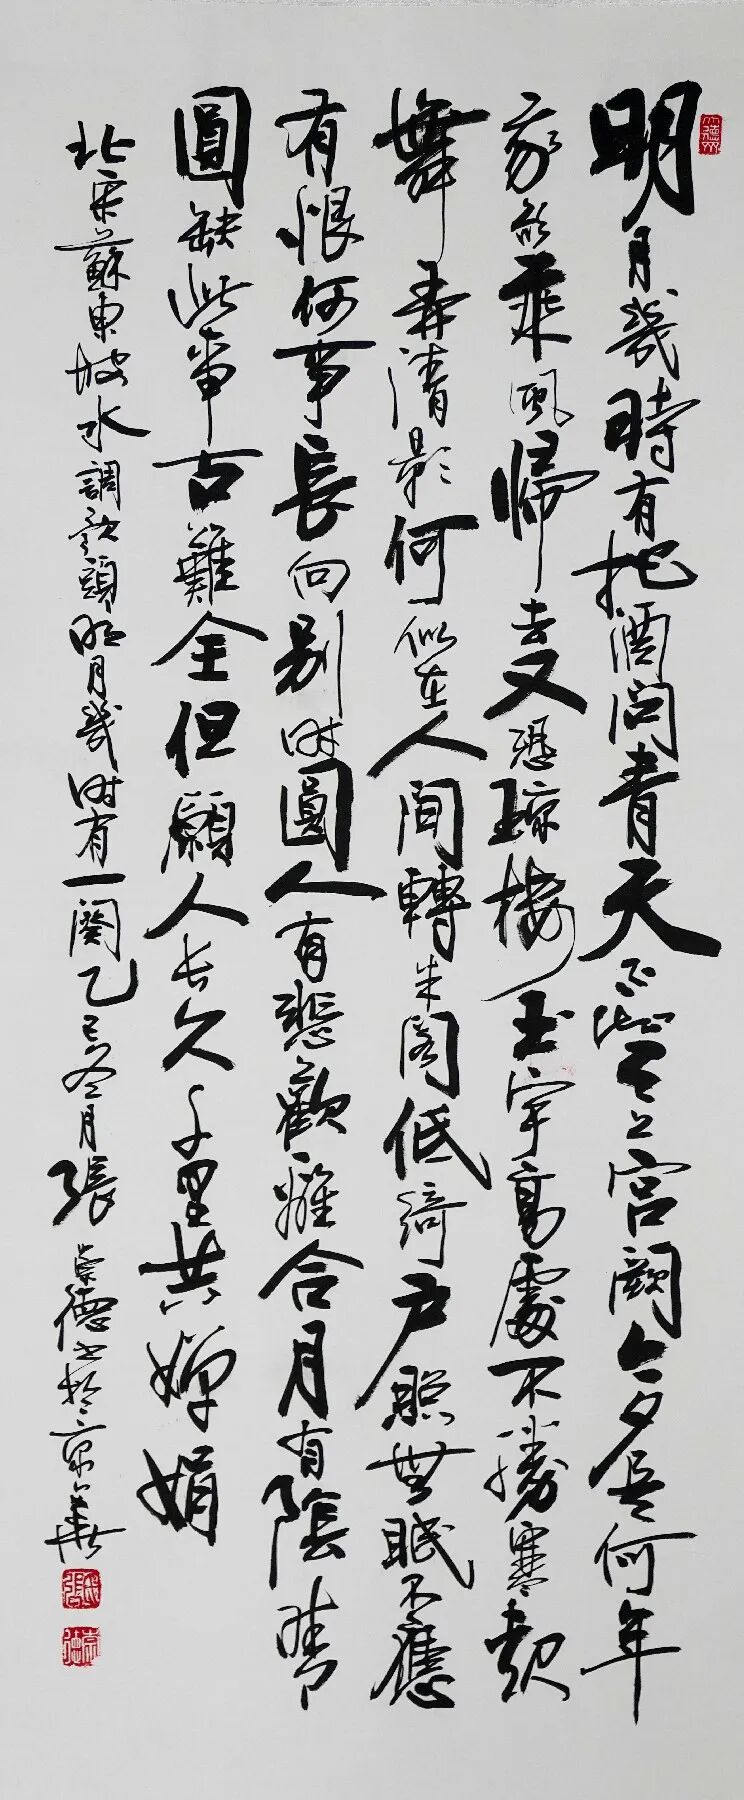 明月幾時有把酒問青天不知天上宮闕今夕是何年
我欲乘風歸去又恐琼樓玉宇高處不勝寒起
舞弄清影何似在人間轉朱閣低綺户照無眠不應
有恨何事長向别時圓人有悲歡離合月有陰晴
圓缺此事古難全但願人長久千里共嬋娟
北宋蘇東坡水調歌頭明月幾時有一闋乙巳冬月張崇德書於京華